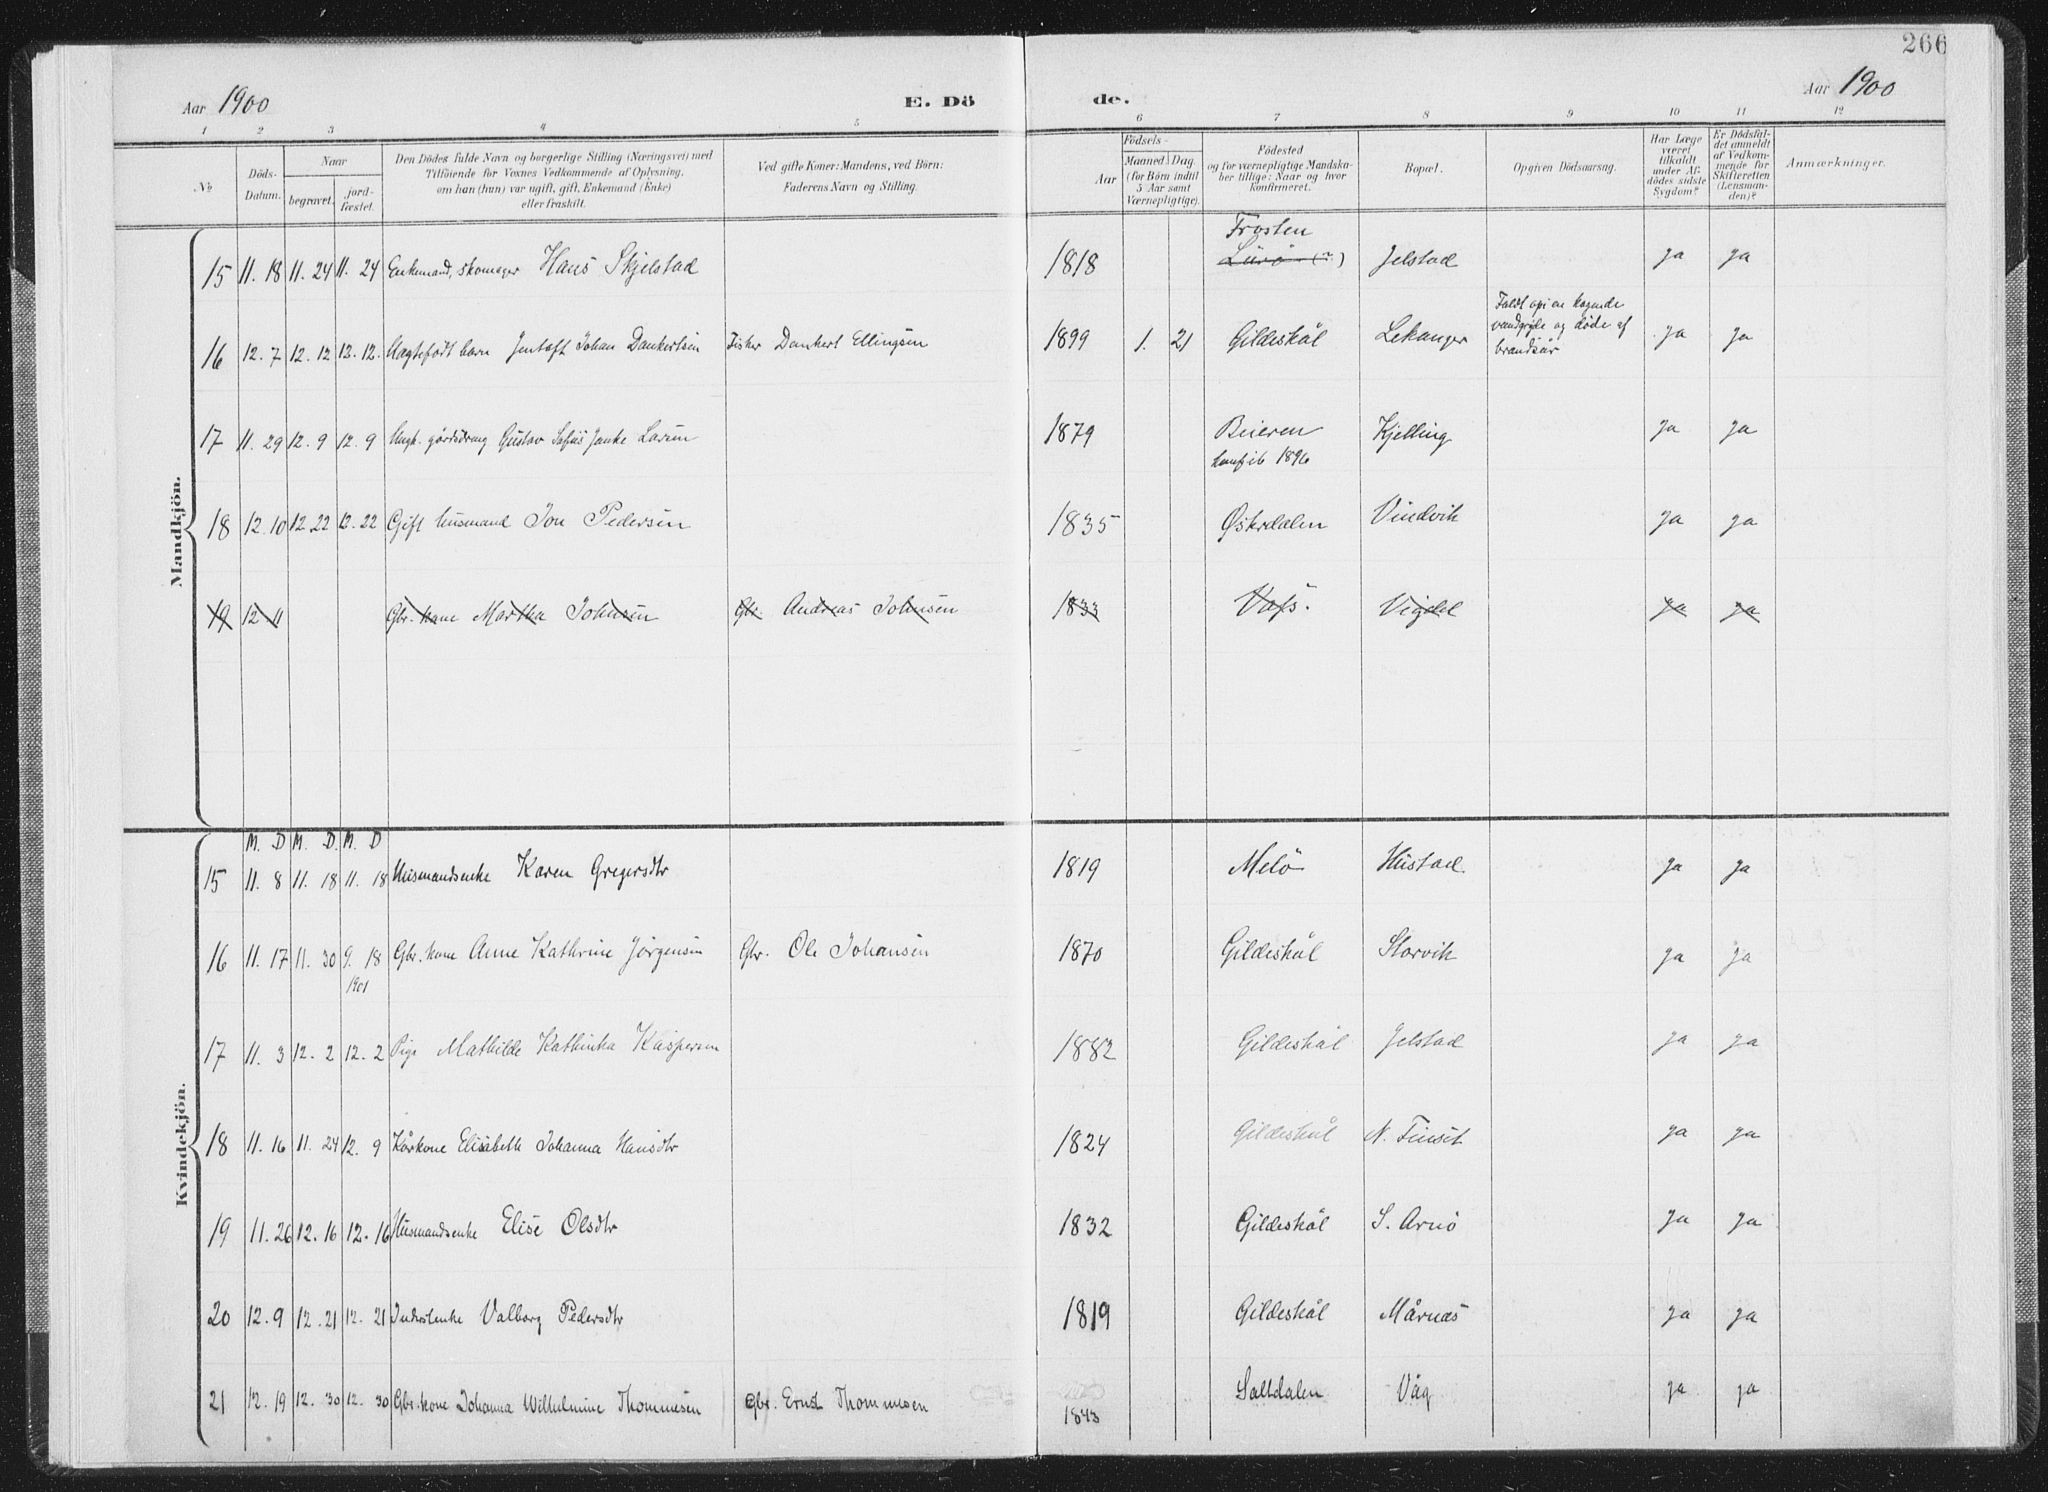 266
Aar 1900 E. Dö de. Aar 1900
1 2 3 4 5 6 7 8 9 10 11 12
№ Döds-Datum. Naar begravet. jord-fæstet. Den Dödes fulde Navn og borgerlige Stilling (Næringsvei) med Tilföiende for Voxnes Vedkommende af Oplysning, om han (hun) var ugift, gift, Enkemand (Enke) eller fraskilt. Ved gifte Koner: Mandens, ved Börn: Faderens Navn og Stilling. Födsels- Aar Maaned Dag. (for Börn indtil 5 Aar samt Værnepligtige). Födested og for værnepligtige Mandskaber tillige: Naar og hvor konfirmeret. Bopæl. Opgiven Dödsaarsag. Har Læge været tilkaldt under Afdödes sidste Sygdom? Er Dödsfaldet anmeldt af Vedkommende for Skifteretten (Lensmanden)? Anmærkninger.
Mandkjön.
Frosten
15 11. 18 11. 24 11. 24 Enkemand, skomager Hans Skjelstad 1818 Lurö (?) Jelstad ja ja
16 12. 7 12. 12 12. 12. Uægtefødt barn Jentoft Johan Dankertsen Fisker Dankert Ellingsen 1899 1. 21 Gildeskål Lekanger Faldt opi en kogende vandgryde og døde af brandsår ja ja
17 11. 29 12. 9 12. 9 Ungk. gårdsdreng Gustav Sofus Janke Larsen 1879 Beieren Kjelling ja ja
konf. ib 1896
18 12. 10 12 22 12. 22 Gift husmand Jon Pedersen 1835 Østerdalen Vindvik ja ja
19 12 11 Gbr. kone Martha Johnsen Gbr. Andreas Johnsen 1833 Vefs. Vigdel ja ja
Kvindekjön.
M. D M. D. M. D
15 11. 8 11. 18 11. 18 Husmandsenke Karen Gregersdtr 1819 Melö Hustad. ja ja
16 11. 17 11. 30 9. 18 Gbr. kone Anne Kathrine Jörgensen Gbr. Ole Johansen 1870 Gildeskål Storvik ja ja
1901
17 11. 3 12. 2 12. 2 Pige Mathilde Kathinka Kaspersen 1882 Gildeskål Jelstad ja ja
18 11. 16 11. 24 12. 9 Kårkone Elisabeth Johanna Hansdtr 1824 Gildeskål N. Finset ja ja
19 11. 26 12. 16 12. 16 Husmandsenke Elise Olsdtr 1832 Gildeskål S. Arnö ja ja
20 12. 9 12. 21 12. 21 Inderstenke Valborg Pedersdtr 1819 Gildeskål Mårnæs ja ja
21 12. 19 12. 30 12. 30 Gbr. kone Johanna Wilhelmine Thommesen Gbr. Ernst Thommesen 1843 Saltdalen Våg ja ja